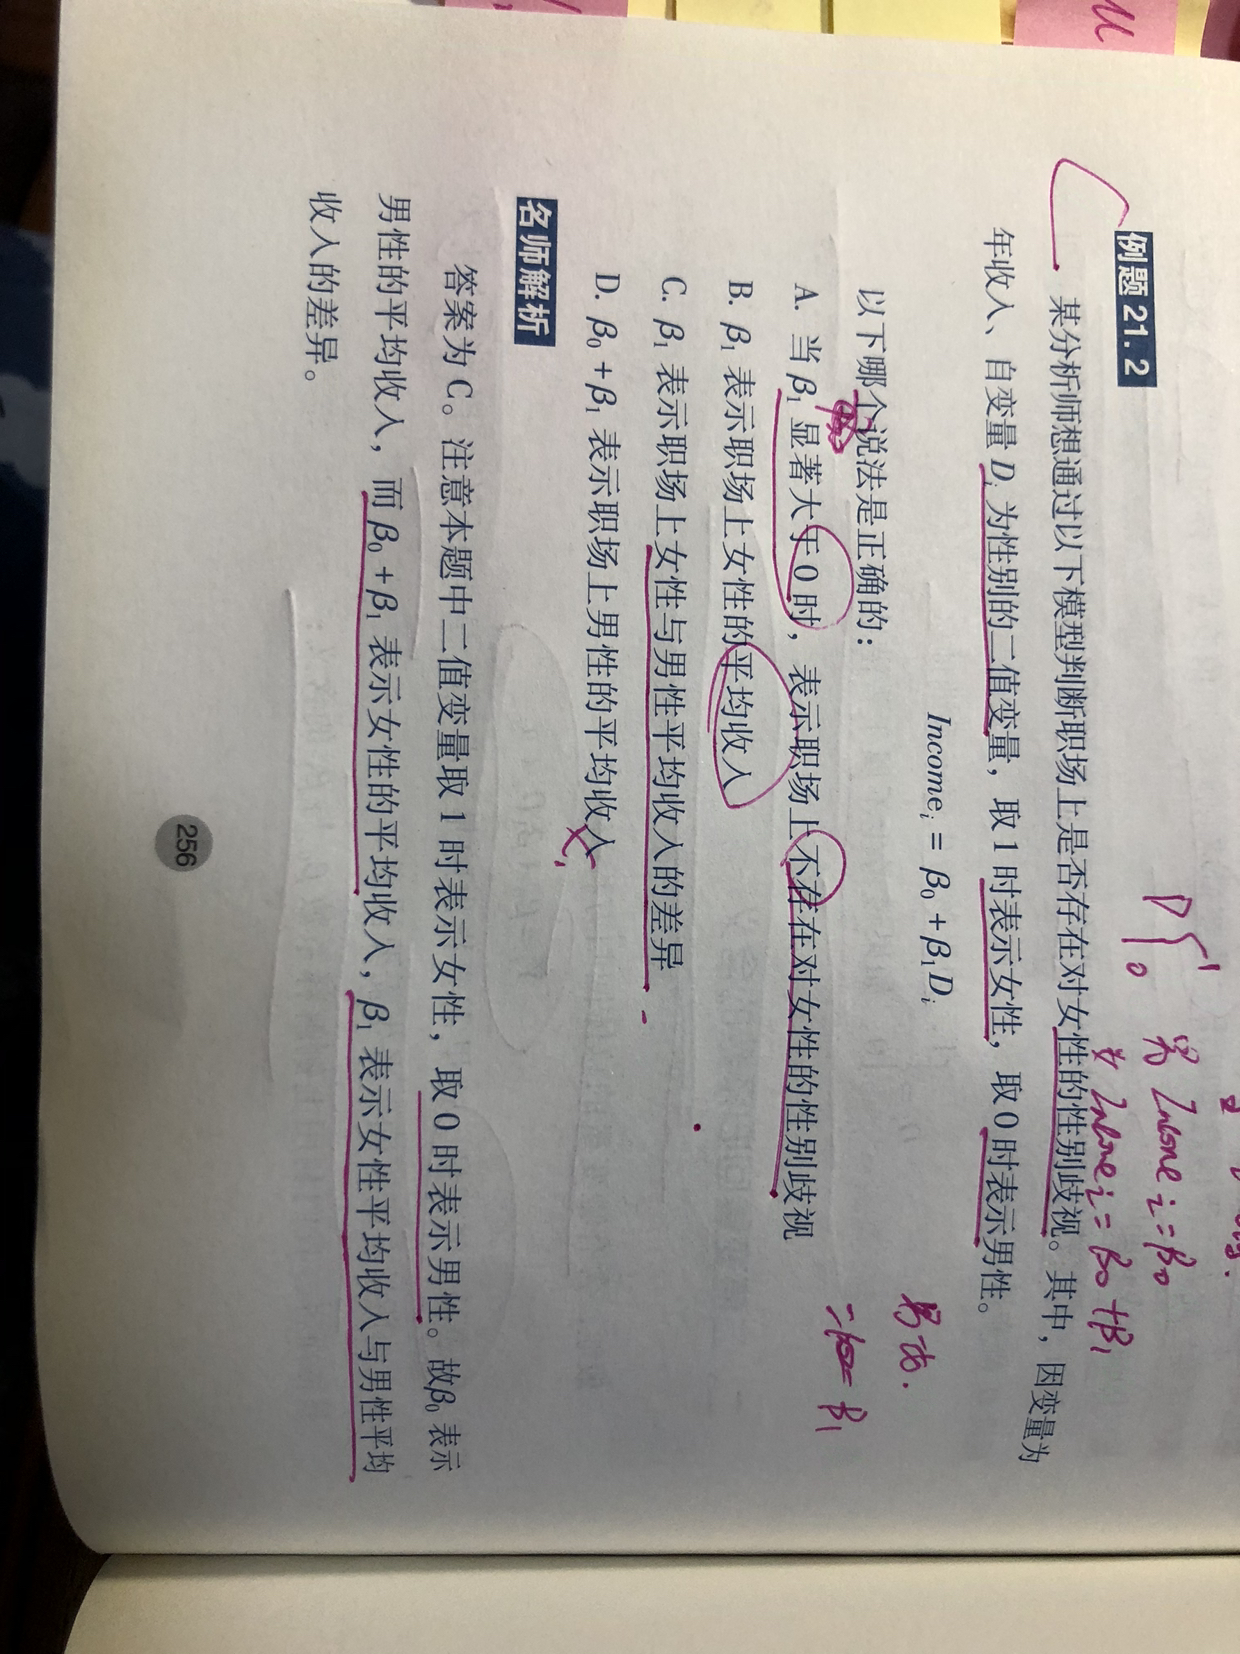 例题 21.2
某分析师想通过以下模型判断职场上是否存在对女性的性别歧视。其中，因变量为
年收入、自变量 Dᵢ 为性别的二值变量，取 1 时表示女性，取 0 时表示男性。
Incomeᵢ = β₀ + β₁Dᵢ
以下哪个说法是正确的：
A. 当 β₁ 显著大于 0 时，表示职场上不存在对女性的性别歧视
B. β₁ 表示职场上女性的平均收入
C. β₁ 表示职场上女性与男性平均收入的差异
D. β₀ + β₁ 表示职场上男性的平均收入
名师解析
答案为 C。注意本题中二值变量取 1 时表示女性，取 0 时表示男性。故β₀ 表示
男性的平均收入，而 β₀ + β₁ 表示女性的平均收入，β₁ 表示女性平均收入与男性平均
收入的差异。
256
D { 1
0
男 Income i = β₀
女 Income i = β₀ + β₁
β₁